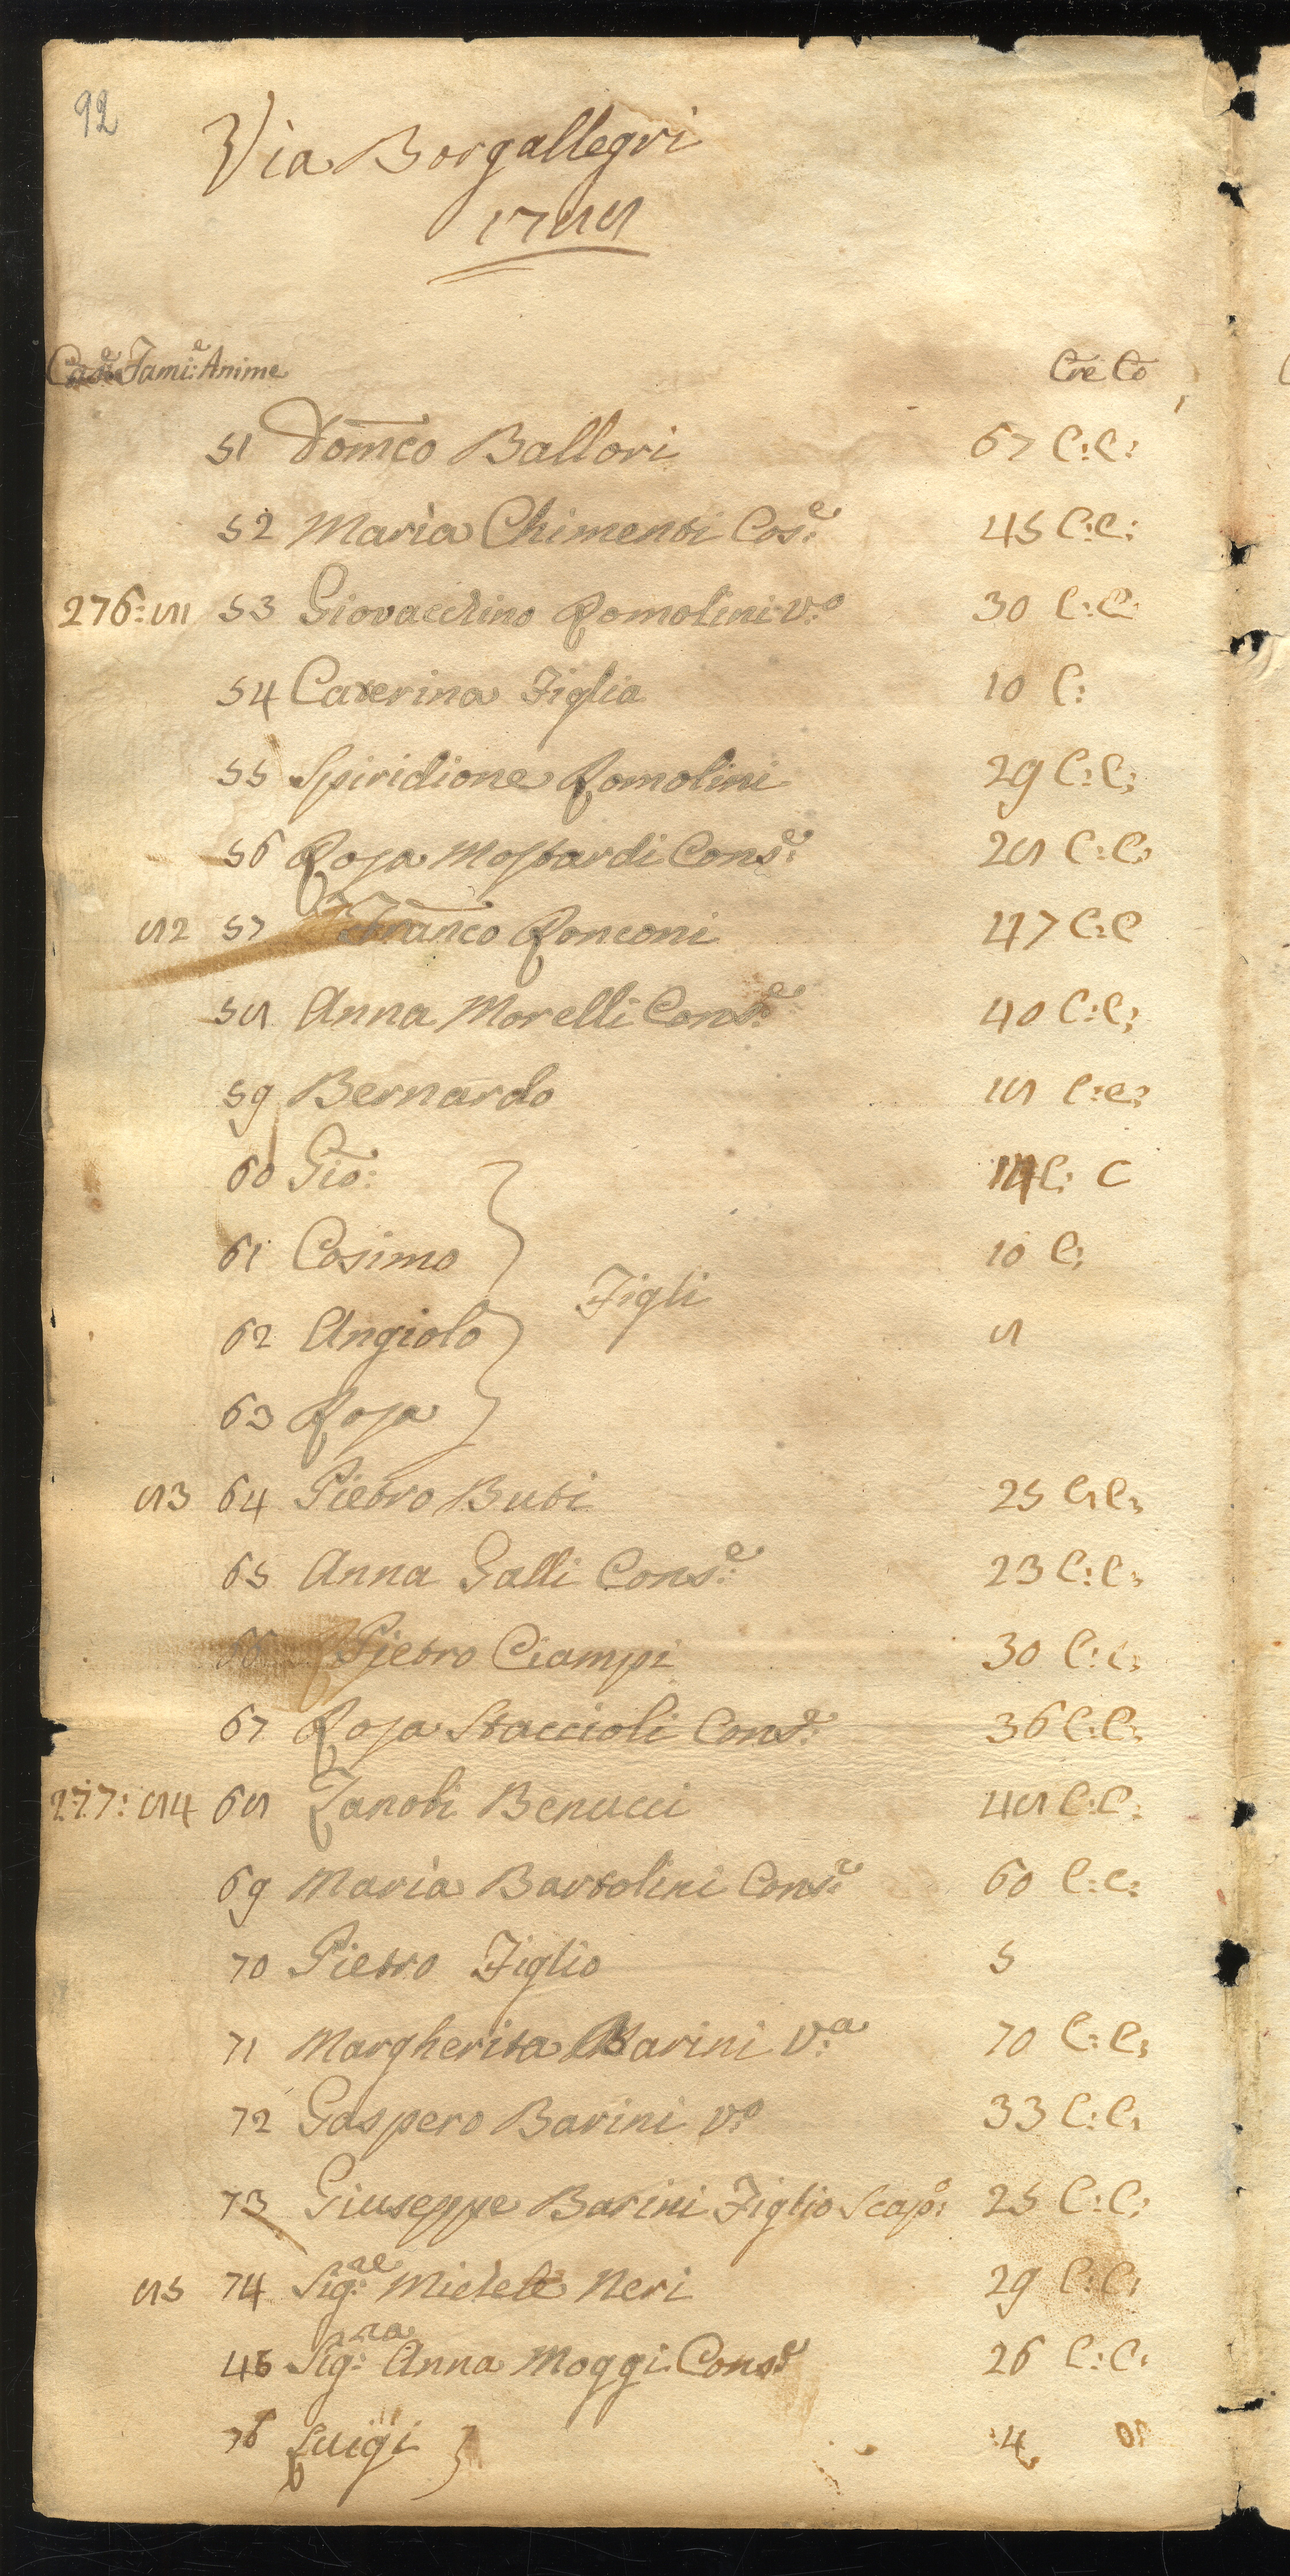 92
Via Borgallegri
1788
Case Fami:e Anime Cre Co
51 Domco Ballori 67 C: C:
52 Maria Chimenti Cos:e 45 C: C:
276: 81 53 Giovacchino Romolini V:o 30 C: C:
54 Caterina Figlia 10 C:
55 Spiridione Romolini 29 C: C:
56 Rosa Mostardi Cons:e 28 C: C:
82 57 Franco Ronconi 47 C: C
58 Anna Morelli Cons:e 40 C: C:
59 Bernardo 18 C: C:
60 Gio: 14 C: C
61 Cosimo 10 C:
Figli
62 Angiolo 8
63 Rosa
83 64 Pietro Buti 25 C: C:
65 Anna Galli Cons:e 23 C: C:
66 Pietro Ciampi 30 C: C:
67 Rosa Staccioli Cons:e 36 C: C:
277: 84 68 Zanobi Benucci 48 C: C:
69 Maria Bartolini Cons:e 60 C: C:
70 Pietro Figlio 5
71 Margherita Barini V:a 70 C: C:
72 Gaspero Barini V:o 33 C: C:
73 Giuseppe Barini Figlio Scap:o 25 C: C:
85 74 Sig:re Michele Neri 29 C: C:
45 Sig:ra Anna Moggi Cons:e 26 C: C:
76 Luigi 4